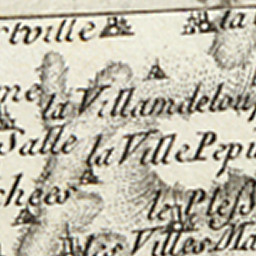 rtville
la
la Villamdeloup
Salle
la Ville Pepi
chées
le Pless
les Villes Ma